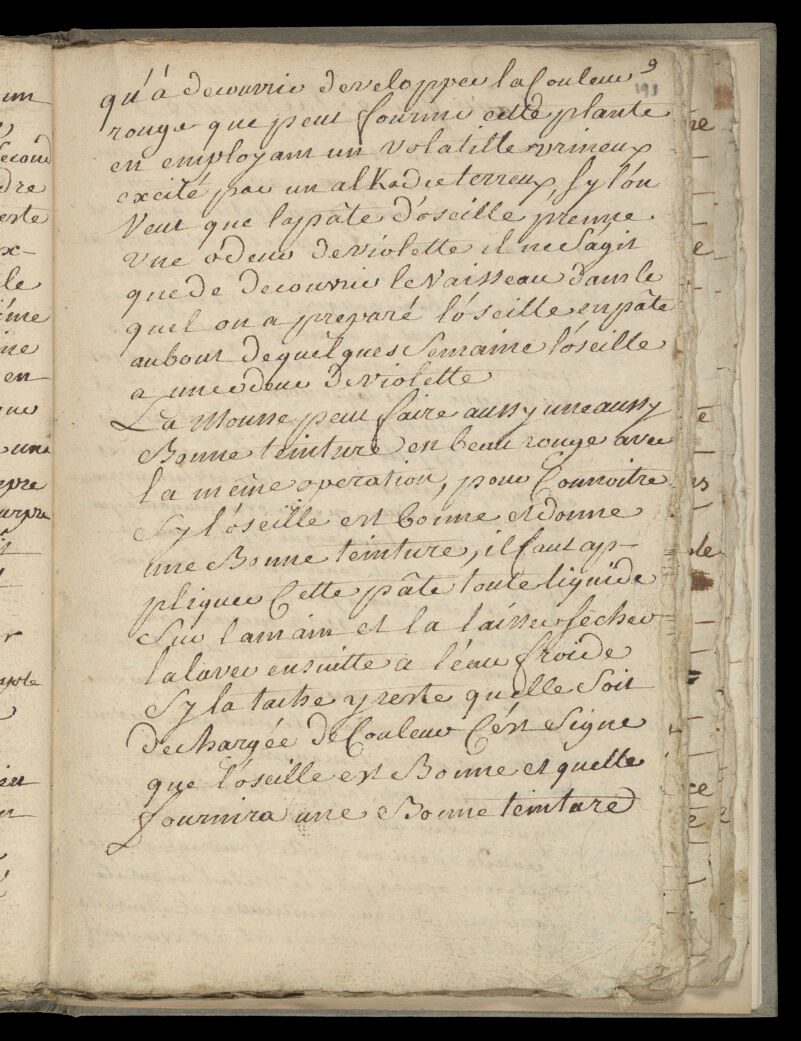 9
191
qu'à decouvrir developper la Couleur
rouge que peut fournir cette plante
en employant un volatille urineux
excité par un alKadieterreux, Sy l'ón
Veut que la pâte d'oseille prenne
vne ódeur de violette il ne Sagit
que de decouvrir le Vaisseau dans le
quel on a preparé l'óseille en pâte
aubout de quelques Semaine l'óseille
a une odeur de violette
La Mousse peut faire aussy une aussy
Bonne teinture en beau rouge avec
la même operation, pour Connoitre
Sy l'óseille est bonne et donne
une Bonne teinture, il faut ap-
pliquer Cette pâte toute liquide
Sur la main et la laisser secher
la laver ensuitte a l'éau froide
Sy la tache y reste quelle Soit
dechargée de Couleur C'ést Signe
que l'óseille est Bonne et quelle
fournira une Bonne teinture